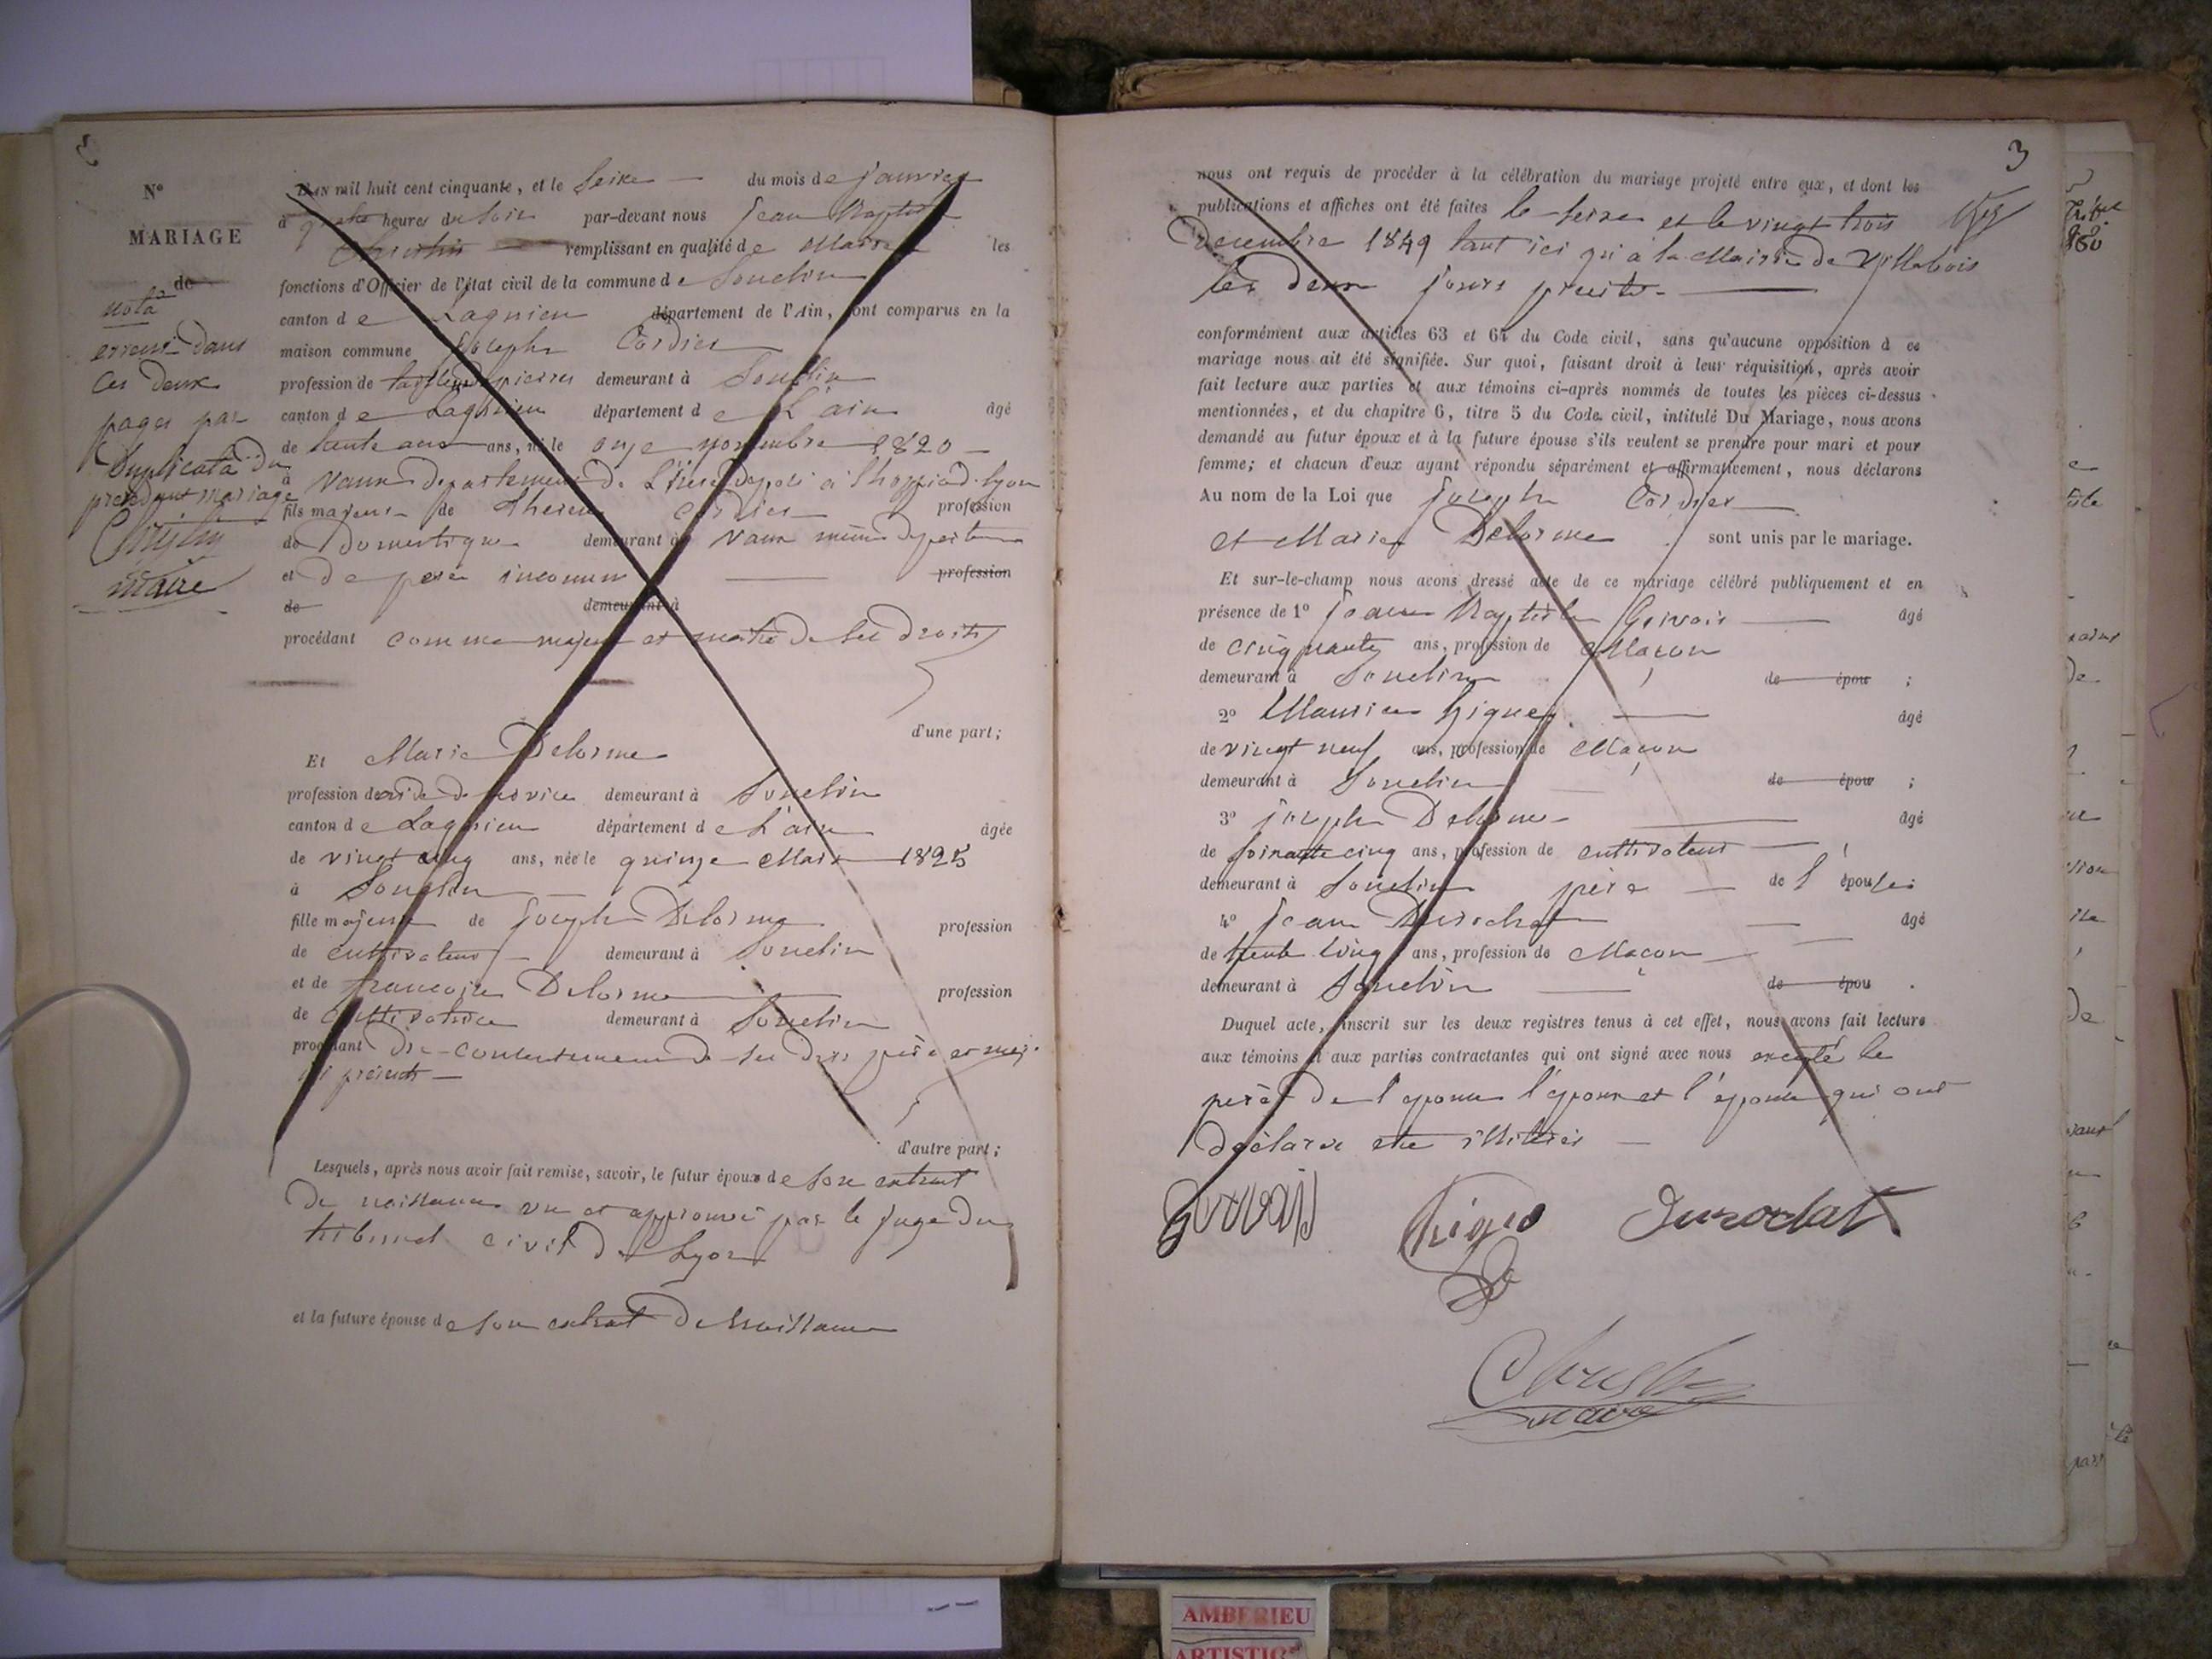 N°
MARIAGE
de
nota
erreur dans
ces deux
pages par
Duplicata du
précédent mariage
maire
L'AN mil huit cent cinquante, et le seize du mois de janvier
à quatre heures du soir par-devant nous Jean Baptiste
Christin remplissant en qualité de Maire les
fonctions d'Officier de l'état civil de la commune de Souclin
canton de Lagnieu département de l'Ain, ont comparus en la
maison commune Joseph Cordier
profession de tailleur de pierres demeurant à Souclin
canton de Lagnieu département de L'ain âgé
de trente ans ans, né le onze novembre 1820
à Vaux departement de L'isère déposé à l'hospice d. Lyon
fils majeur de Therese Cordier profession
de Domestique demeurant à Vaux même departem
et de père inconnu profession
de demeurant à
procédant comme majeur et maitre de ses droits
d'une part;
Et Marie Delorme
profession de aide de service demeurant à Souclin
canton de Lagnieu département de L'ain âgée
de vingt cinq ans, née le quinze Mars 1825
à Souclin
fille majeure de Joseph Delorme profession
de cultivateur demeurant à Souclin
et de francoise Delorme profession
de cultivatrice demeurant à Souclin
procédant du consentement de ses dits père et mère
ici présents
d'autre part;
Lesquels, après nous avoir fait remise, savoir, le futur époux de son extrait
de naissance vu et approuvé par le juge du
tribunal civil de Lyon
et la future épouse de son extrait de naissance
3
nous ont requis de procéder à la célébration du mariage projeté entre eux, et dont les
publications et affiches ont été faites le seize et le vingt trois
Decembre 1849 tant ici qu'à la Mairie de Villebois
les deux jours precités
conformément aux articles 63 et 64 du Code civil, sans qu'aucune opposition à ce
mariage nous ait été signifiée. Sur quoi, faisant droit à leur réquisition, après avoir
fait lecture aux parties et aux témoins ci-après nommés de toutes les pièces ci-dessus
mentionnées, et du chapitre 6, titre 5 du Code civil, intitulé Du Mariage, nous avons
demandé au futur époux et à la future épouse s'ils veulent se prendre pour mari et pour
femme; et chacun d'eux ayant répondu séparément et affirmativement, nous déclarons
Au nom de la Loi que Joseph Cordier
et Marie Delorme sont unis par le mariage.
Et sur-le-champ nous avons dressé acte de ce mariage célébré publiquement et en
présence de 1° Jean Baptiste Gervais âgé
de cinquante ans, profession de Maçon
demeurant à Souclin de épou ;
2° Maurice Higues âgé
de vingt neuf ans, profession de Maçon
demeurant à Souclin de épou ;
3° joseph Delorme âgé
de soixante cinq ans, profession de cultivateur
demeurant à Souclin père de l'épouse;
4° Jean Durochat âgé
de trente cinq ans, profession de Maçon
demeurant à Souclin de épou .
Duquel acte, inscrit sur les deux registres tenus à cet effet, nous avons fait lecture
aux témoins et aux parties contractantes qui ont signé avec nous excepté le
père de l'épouse l'époux et l'épouse qui ont
déclaré etre illiterés
Gervais
Durochat
maire
AMBERIEU
ARTISTIC